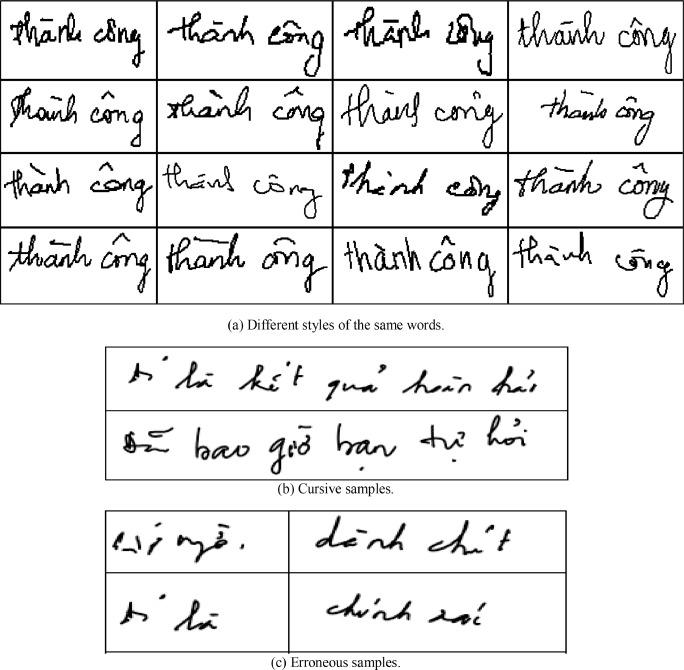 thành công thành công thành công thành công
thành công thành công thành công thành công
thành công thành công thành công thành công
thành công thành công thành công thành công
(a) Different styles of the same words.
là kết quả hoàn hảo
bao giờ bạn tự hỏi
(b) Cursive samples.
ngỏ. dành chút
là chính xác
(c) Erroneous samples.